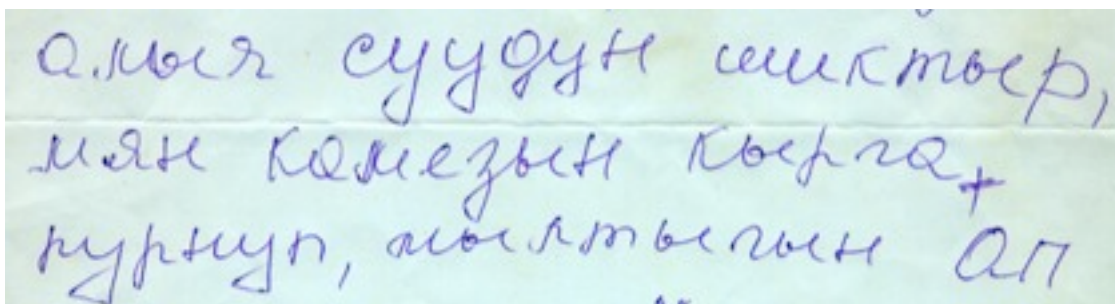 амыя суудун шиктыр,
мян камезын кырга+
пурнуп, мылтыгын ап